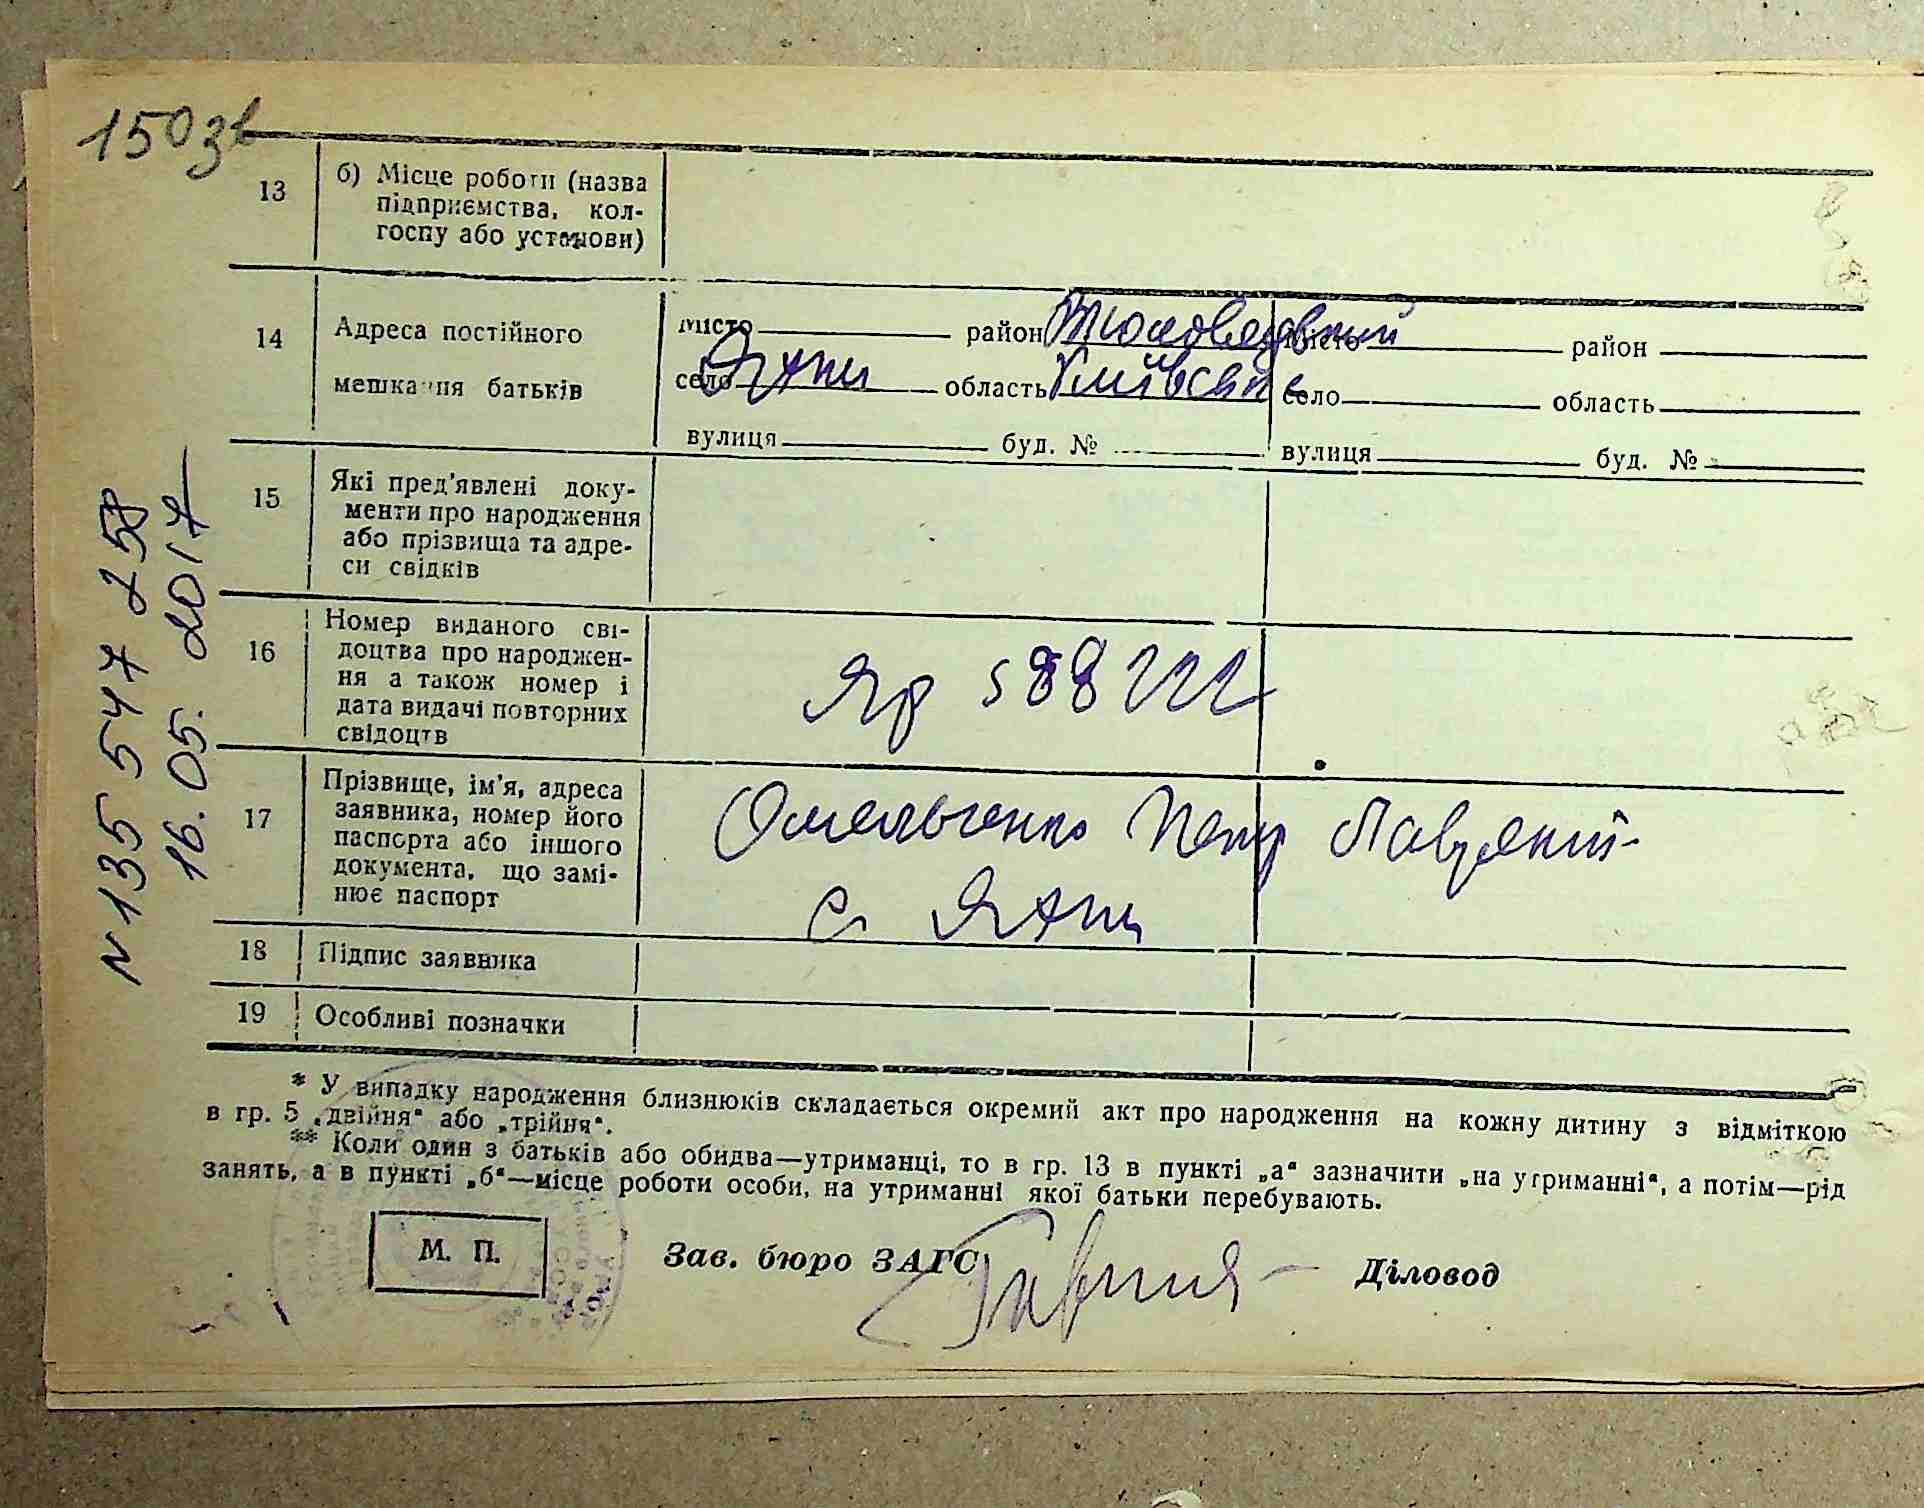 150 зв
13 б) Місце роботи (назва
підприємства, кол-
госпу або установи)
14 Адреса постійного
мешкання батьків
місто район місто район
село Ягни область Київська село область
вулиця буд. № вулиця буд. №
15 Які пред'явлені доку-
менти про народження
або прізвища та адре-
си свідків
16 Номер виданого сві-
доцтва про народжен-
ня а також номер і
дата видачі повторних
свідоцтв
Яр 588
17 Прізвище, ім'я, адреса
заявника, номер його
паспорта або іншого
документа, що замі-
нює паспорт
Омельченко Петр
с. Ягни
18 Підпис заявника
19 Особливі позначки
* У випадку народження близнюків складається окремий акт про народження на кожну дитину з відміткою
в гр. 5 „двійня“ або „трійня“.
** Коли один з батьків або обидва—утриманці, то в гр. 13 в пункті „а“ зазначити „на утриманні“, а потім—рід
занять, а в пункті „б“—місце роботи особи, на утриманні якої батьки перебувають.
М. П. Зав. бюро ЗАГС Діловод
N 135 547 258
16. 05. 2017